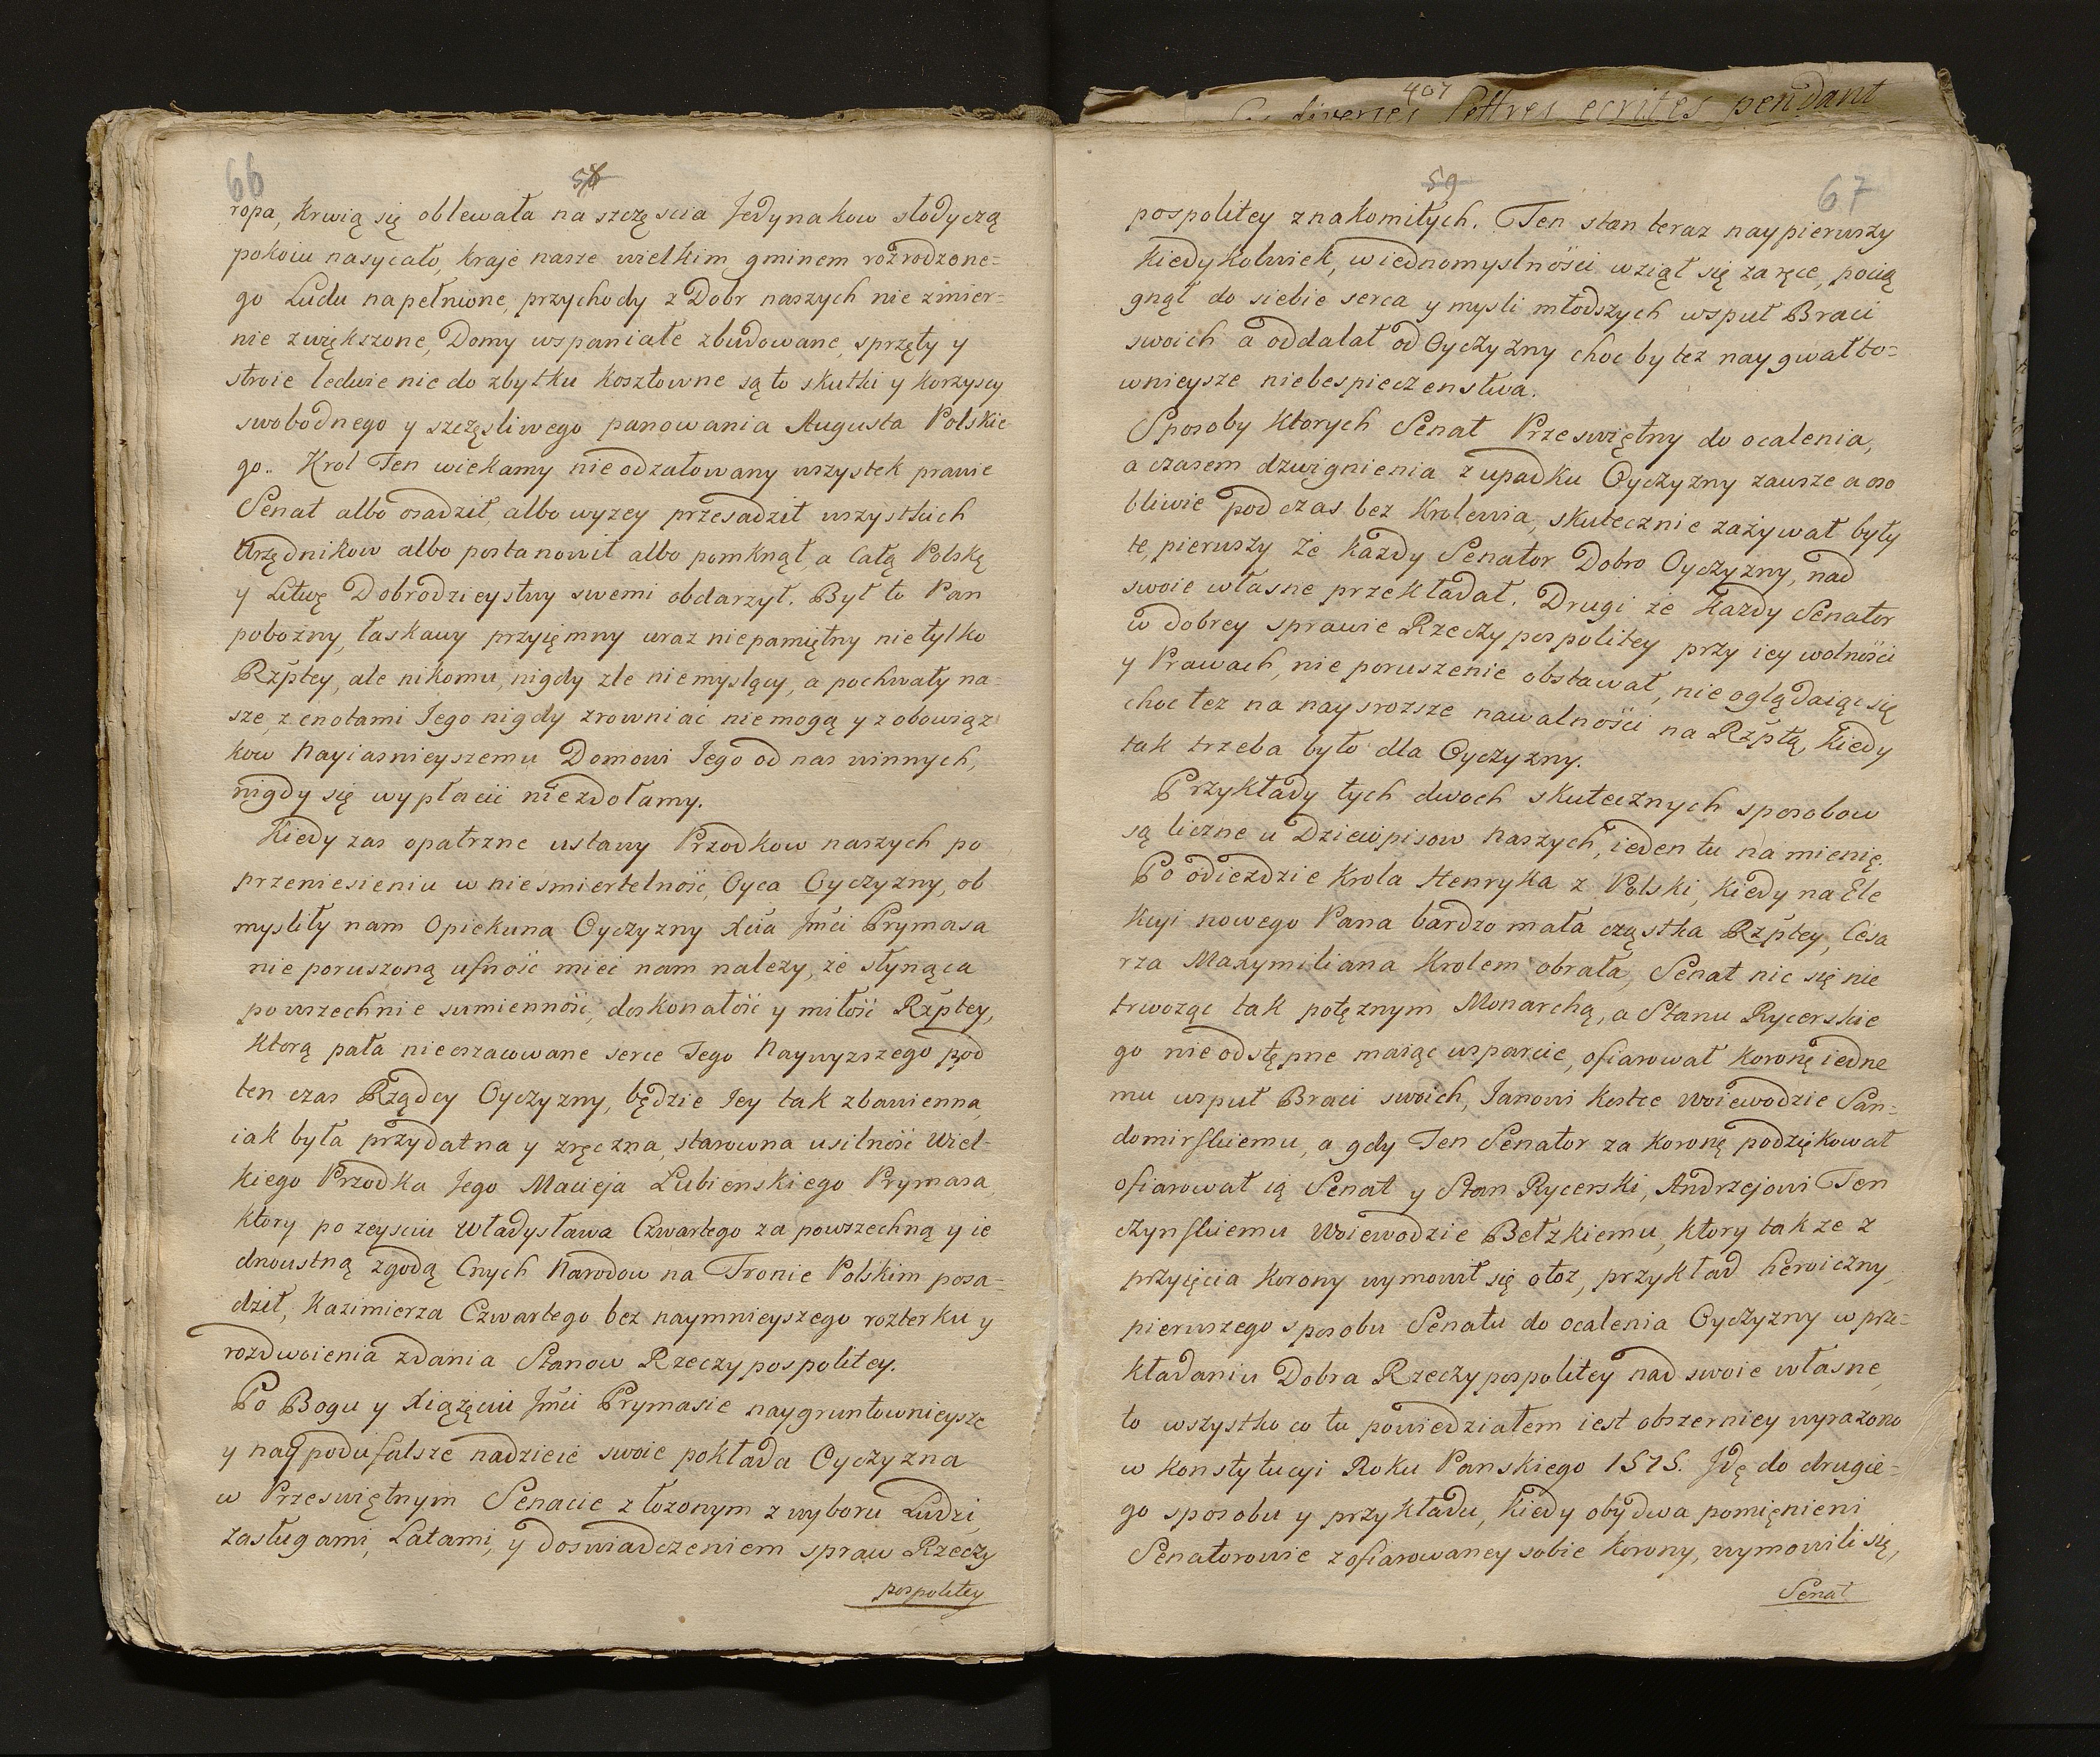 66
58
ropa, krwią się oblewała na szczęscia Jedynakow słodyczą
pokoiu nasycało, kraje nasze wielkim gminem rozrodzone-
go Ludu napełnione, przychody z Dobr naszych nie zmier-
nie zwiększone, Domy wspaniałe zbudowane, sprzęty y
stroie ledwie nie do zbytku kosztowne są to skutki y korzyscy
swobodnego y szczęsliwego panowania Augusta Polskie
go.. Krol Ten wiekamy nie odzałowany wszystek prawie
Senat albo osadził, albo wyzey przesadził wszystkich
Urzędnikow albo postanowił albo pomknął, a Całą Polskę
y Litwę Dobrodzieystwy swemi obdarzył. Był to Pan
pobozny, łaskawy przyięmny uraz niepamiętny nie tylko
Rzptey, ale nikomu, nigdy zle niemyslący, a pochwały na-
sze, z cnotami Jego nigdy zrowniać niemogą y z obowiąz
kow Nayiasnieyszemu Domowi Jego od nas winnych,
nigdy się wypłacić niezdołamy.
Kiedy zas opatrzne ustawy Przodkow naszych po
przeniesieniu w niesmiertelność, Oyca Oyczyzny, ob
mysliły nam Opiekuna Oyczyzny Xcia Jmci Prymasa
nie poruszoną ufność mieć nam nalezy, ze słynąca
powszechnie sumienność, doskonałość y miłość Rzptey,
ktorą pała nieoszacowane serce Jego Naywyzszego pod
ten czas Rządcy Oyczyzny, będzie Jey tak zbawienna,
iak była przydatna y zręczna, starowna usilność Wiel-
kiego Przodka Jego Macieja Lubienskiego Prymasa,
ktory po zeysciu Władysława Czwartego za powszechną y ie
dnoustną zgodą Cnych Narodow na Tronie Polskim posa-
dził, Kazimierza Czwartego bez naymnieyszego rozterku y
rozdwoienia zdania Stanow Rzeczypospolitey.
Po Bogu y Xiązęciu Jmci Prymasie naygruntownieysze
y naypodufalsze nadzieie swoie pokłada Oyczyzna
w Przeswiętnym Senacie złozonym z wyboru Ludzi,
zasługami, Latami, y doswiadczeniem spraw Rzeczy
pospolitey
407
diverses Lettres ecrites pendant
59
67
pospolitey znakomitych. Ten stan teraz naypierwszy
kiedykolwiek, w iednomyslności wziął się za ręce, pocią
gnął do siebie serca y mysli młodszych wsput Braci
swoich a oddalał od Oyczyzny choc by tez naygwałto-
wnieysze niebespieczenstwa.
Sposoby ktorych Senat Przeswiętny do ocalenia,
a czasem dzwignienia z upadku Oyczyzny zawsze a oso
bliwie pod czas bez Krolewia, skutecznie zażywał były
te, pierwszy ze kazdy Senator Dobro Oyczyzny, nad
swoie własne przekładał. Drugi ze kazdy Senator
w dobrey sprawie Rzeczypospolitey przy iey wolności
y Prawach, nie poruszenie obstawał, nie oglądaiąc się
choc tez na naysrozsze nawalności na Rzptą, kiedy
tak trzeba było dla Oyczyzny.
Przykłady tych dwoch skutecznych sposobow
są liczne u Dzieiopisow Naszych, ieden tu namienię.
Po odiezdzie Krola Henryka z Polski, kiedy na Ele
kcyi nowego Pana bardzo mała cząstka Rzptey, Cesa
rza Maxymiliana Krolem obrała, Senat nic się nie
trwoząc tak potęznym Monarchą, a Stanu Rycerskie
go nie odstępne maiąc wsparcie, ofiarował koronę iedne
mu wsput Braci swoich, Janowi Kostce Woiewodzie San-
domirskiemu, a gdy Ten Senator za koronę podziękował
ofiarował ią Senat y Stan Rycerski, Andrzejowi Ten
czynskiemu Woiewodzie Bełzkiemu, ktory takze z
przyięcia korony wymowił się otoz, przykład heroiczny,
pierwszego sposobu Senatu do ocalenia Oyczyzny w prze-
kładaniu Dobra Rzeczypospolitey nad swoie własne,
to wszystko co tu powiedziałem iest obszerniey wyrazono
w konstytucyi Roku Panskiego 1575. Jdę do drugie-
go sposobu y przykładu, kiedy obydwa pomięnieni
Senatorowie z ofiarowaney sobie korony, wymowili się,
Senat